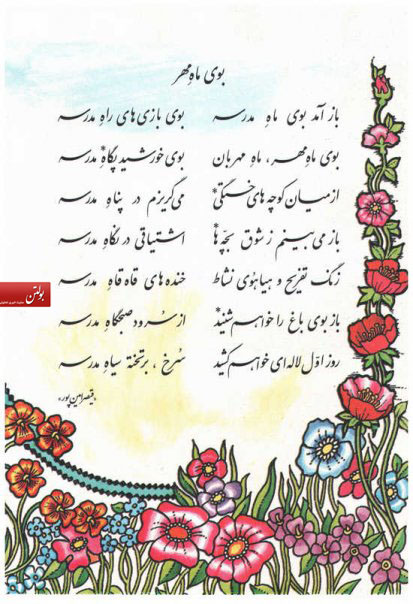 بوی ماهِ مهر
باز آمد بوی ماهِ مدرسه بوی بازی‌های راهِ مدرسه
بوی ماهِ مهر، ماهِ مهربان بوی خورشیدِ پگاهِ* مدرسه
از میان کوچه‌های خستگی* می‌گریزم در پناهِ مدرسه
باز می‌بینم ز شوقِ بچّه‌ها* اشتیاقی در نگاهِ مدرسه
زنگ تفریح و هیاهوی نشاط خنده‌های قاه قاهِ مدرسه
باز بوی باغ را خواهم شنید* از سرودِ صبحگاهِ مدرسه
روز اوّل لاله‌ای خواهم کشید سُرخ، بر تخته سیاهِ مدرسه
«قیصر امین‌پور»
بولتن